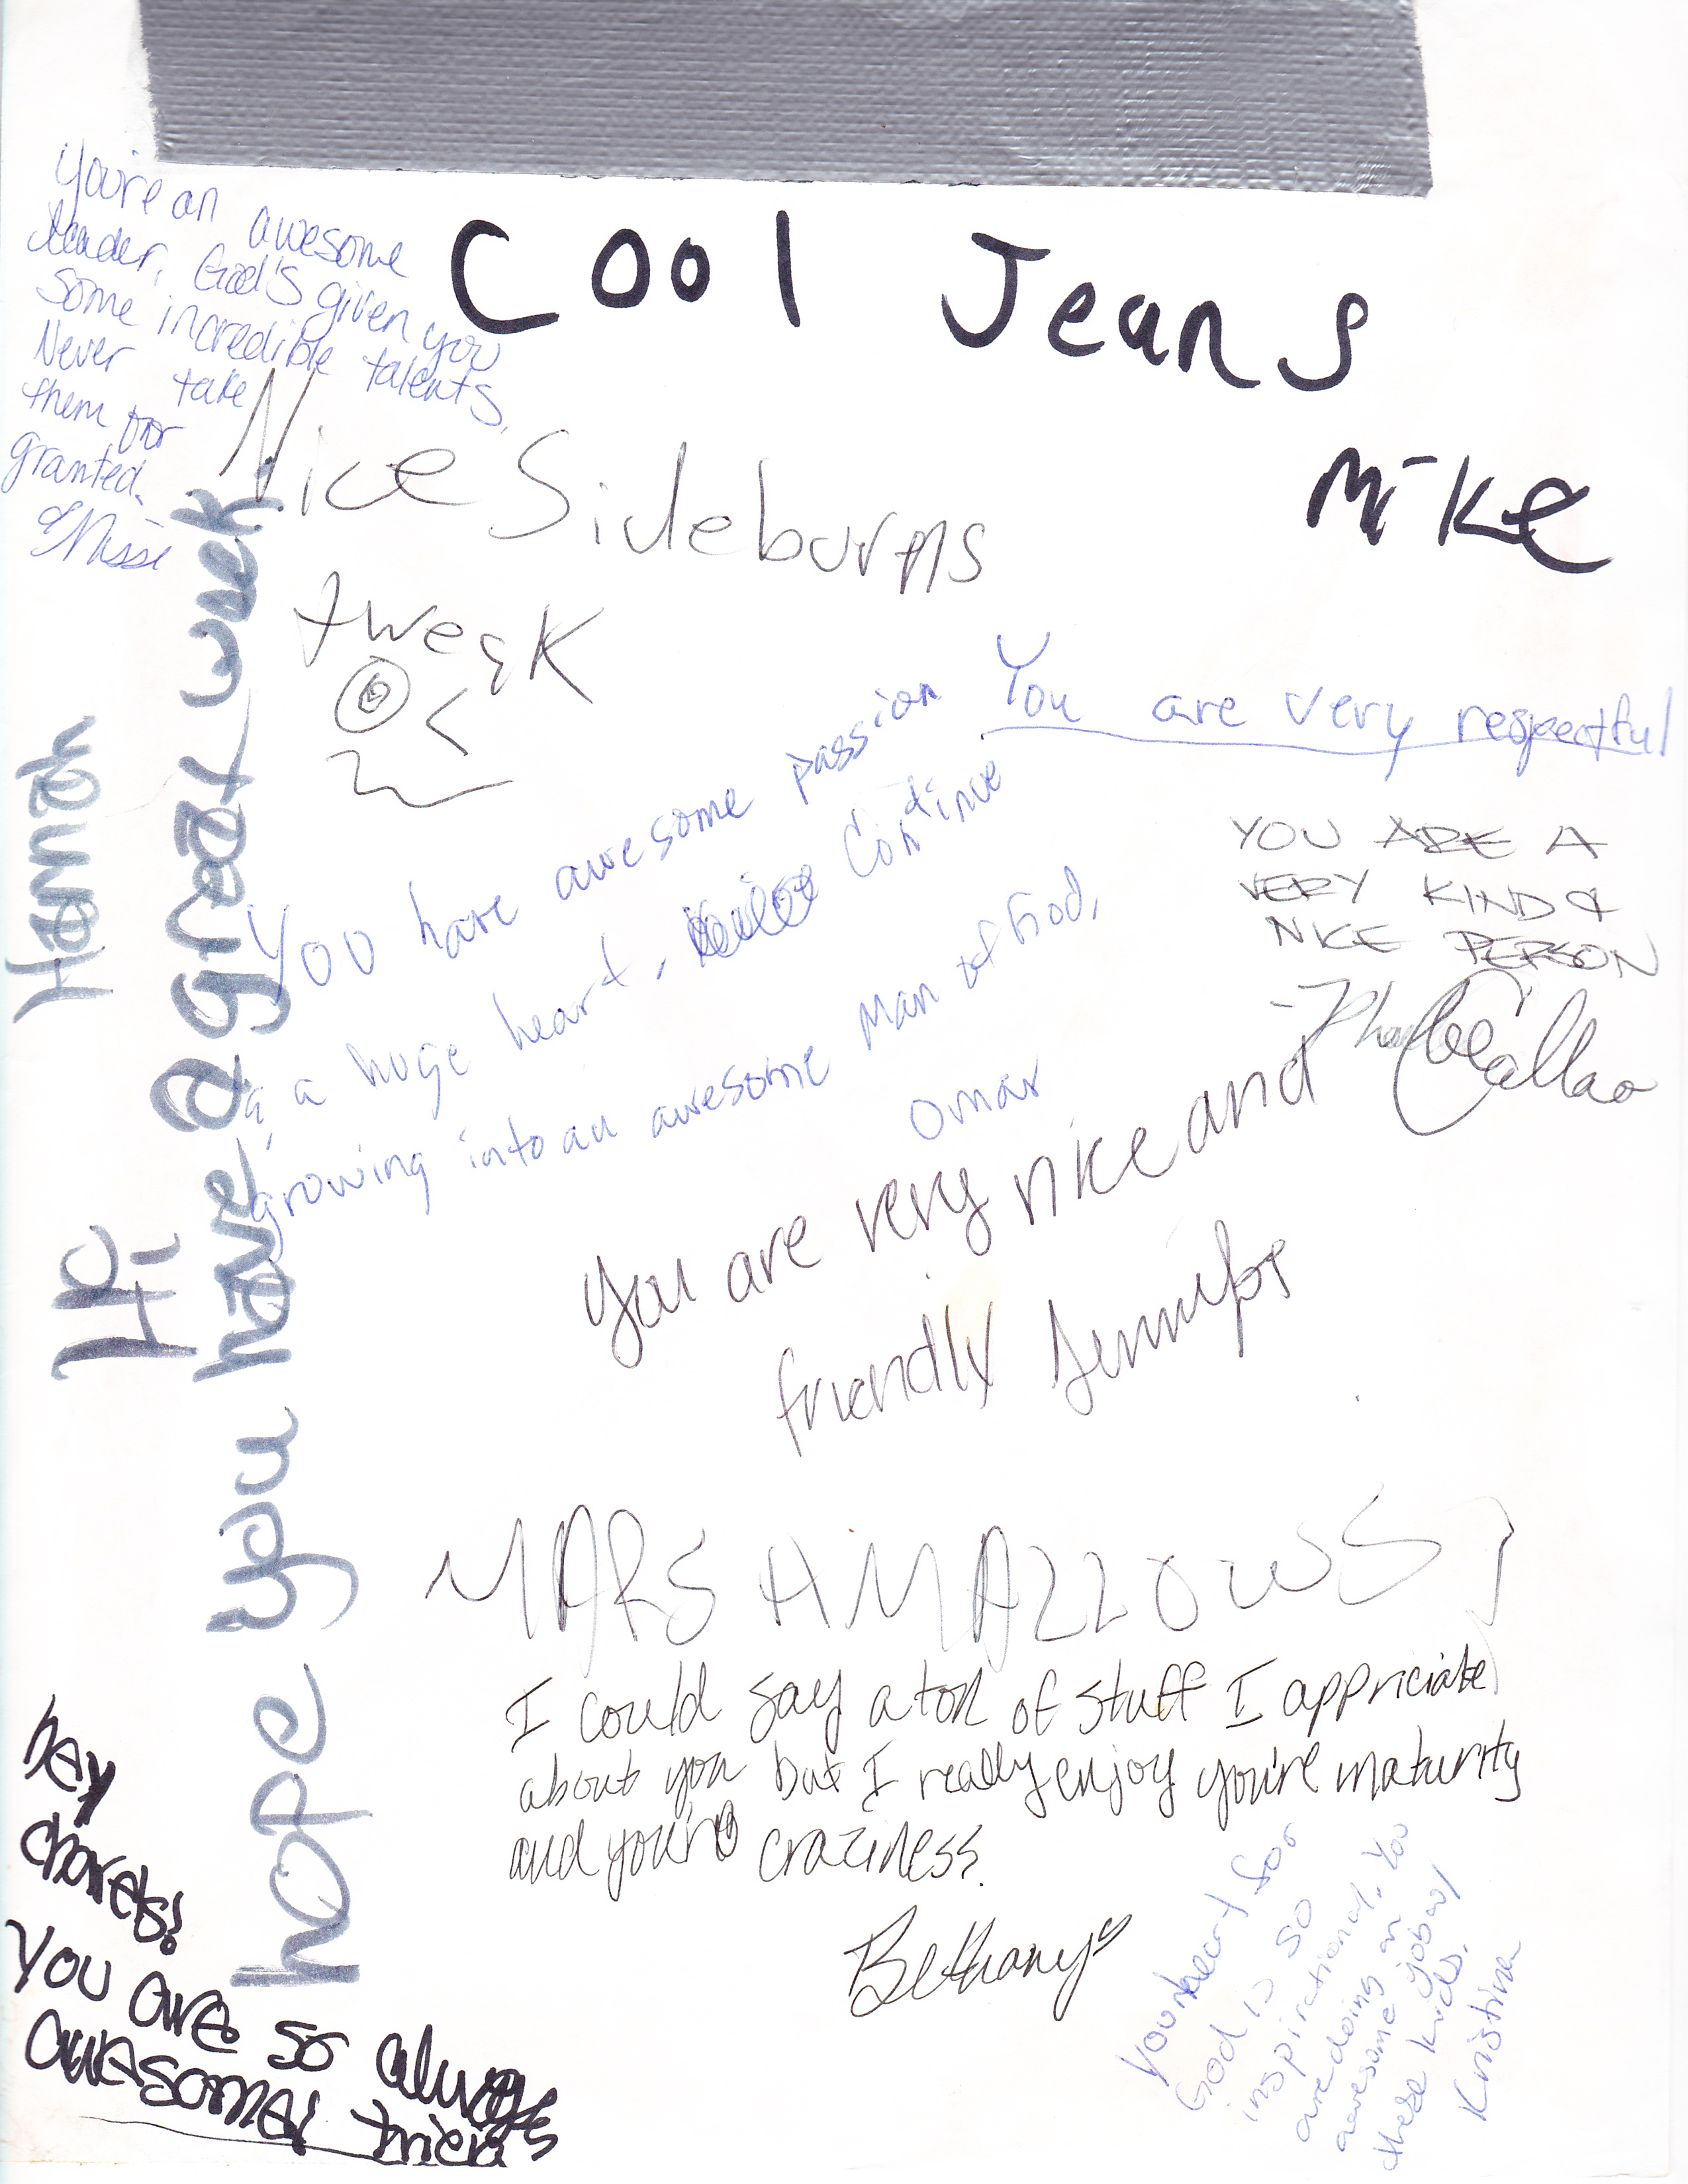 You're an awesome
leader, God's given you
some incredible talents,
Never take
them for
granted.
Cool Jeans
Mike
Nice Sideburns
tweak
You are very respectful
YOU ARE A
VERY KIND &
NICE PERSON
You have awesome passion
& a huge heart, Continue
growing into an awesome man of God,
Omar
You are very nice and
friendly
Hannah
Hi
hope you have a great week
MARSHMALLOWS
I could say a ton of stuff I appriciate
about you but I really enjoy you're maturity
and your craziness.
Bethany
hey
You are so always
awesome!
Your heart for
God is so
inspirational. You
are doing an
awesome job w/
these kids.
Kristina